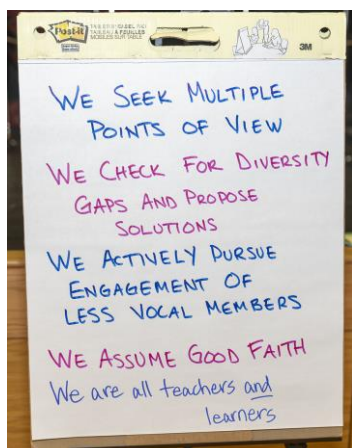 Post-it
3M
WE SEEK MULTIPLE
POINTS OF VIEW
WE CHECK FOR DIVERSITY
GAPS AND PROPOSE
SOLUTIONS
WE ACTIVELY PURSUE
ENGAGEMENT OF
LESS VOCAL MEMBERS
WE ASSUME GOOD FAITH
We are all teachers and
learners